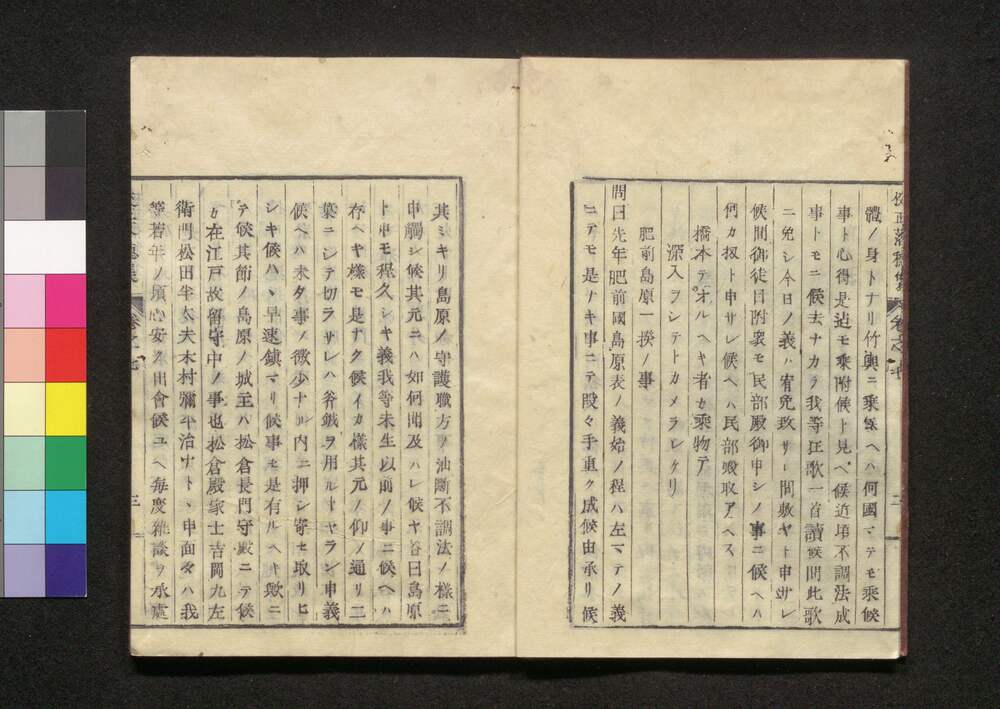 體ノ身トナリ竹輿ニ乘候ヘハ何國マテモ乘候
事ト心得是迠モ乘附候ト見ヘ候近頃不調法成
事トモニ候去ナカラ我等狂歌一首讀候間此歌
ニ免シ今日ノ義ハ宥免致サレ間敷ヤト申サレ
候間御徒目附衆モ民部殿御申シノ事ニ候ヘハ
何カ扨ト申サレ候ヘハ民部殿取アヘス
橋本テオルヘキ者カ乘物テ
深入ヲシテトカメラレケリ
肥前島原一揆ノ事
問曰先年肥前國島原表ノ義始ノ程ハ左マテノ義
ニテモ是ナキ事ニテ段々手重ク成候由承リ候
其ミキリ島原ノ守護職方ノ油斷不調法ノ樣ニ
申觸シ候其元ニハ如何聞及ハレ候ヤ答曰島原
ト申モ程久シキ義我等未生以前ノ事ニ候ヘハ
存ヘキ樣モ是ナク候イカ樣其元ノ仰ノ通リ二
葉ニシテ切ラサレハ斧鉞ヲ用ルトヤラン申義
候ヘハ未タ事ノ微少ナル内ニ押シ寄セ取リヒ
シキ候ハヽ早速鎭マリ候事モ是有ルヘキ歟ニ
テ候其節ノ島原ノ城主ハ松倉長門守殿ニテ候
カ在江戸故留守中ノ事也松倉殿家士吉岡九左
衛門松田半太夫木村彌平治ナトヽ申面々ハ我
等若年ノ頃心安ク出會候ユヘ毎度雜談ヲ承處